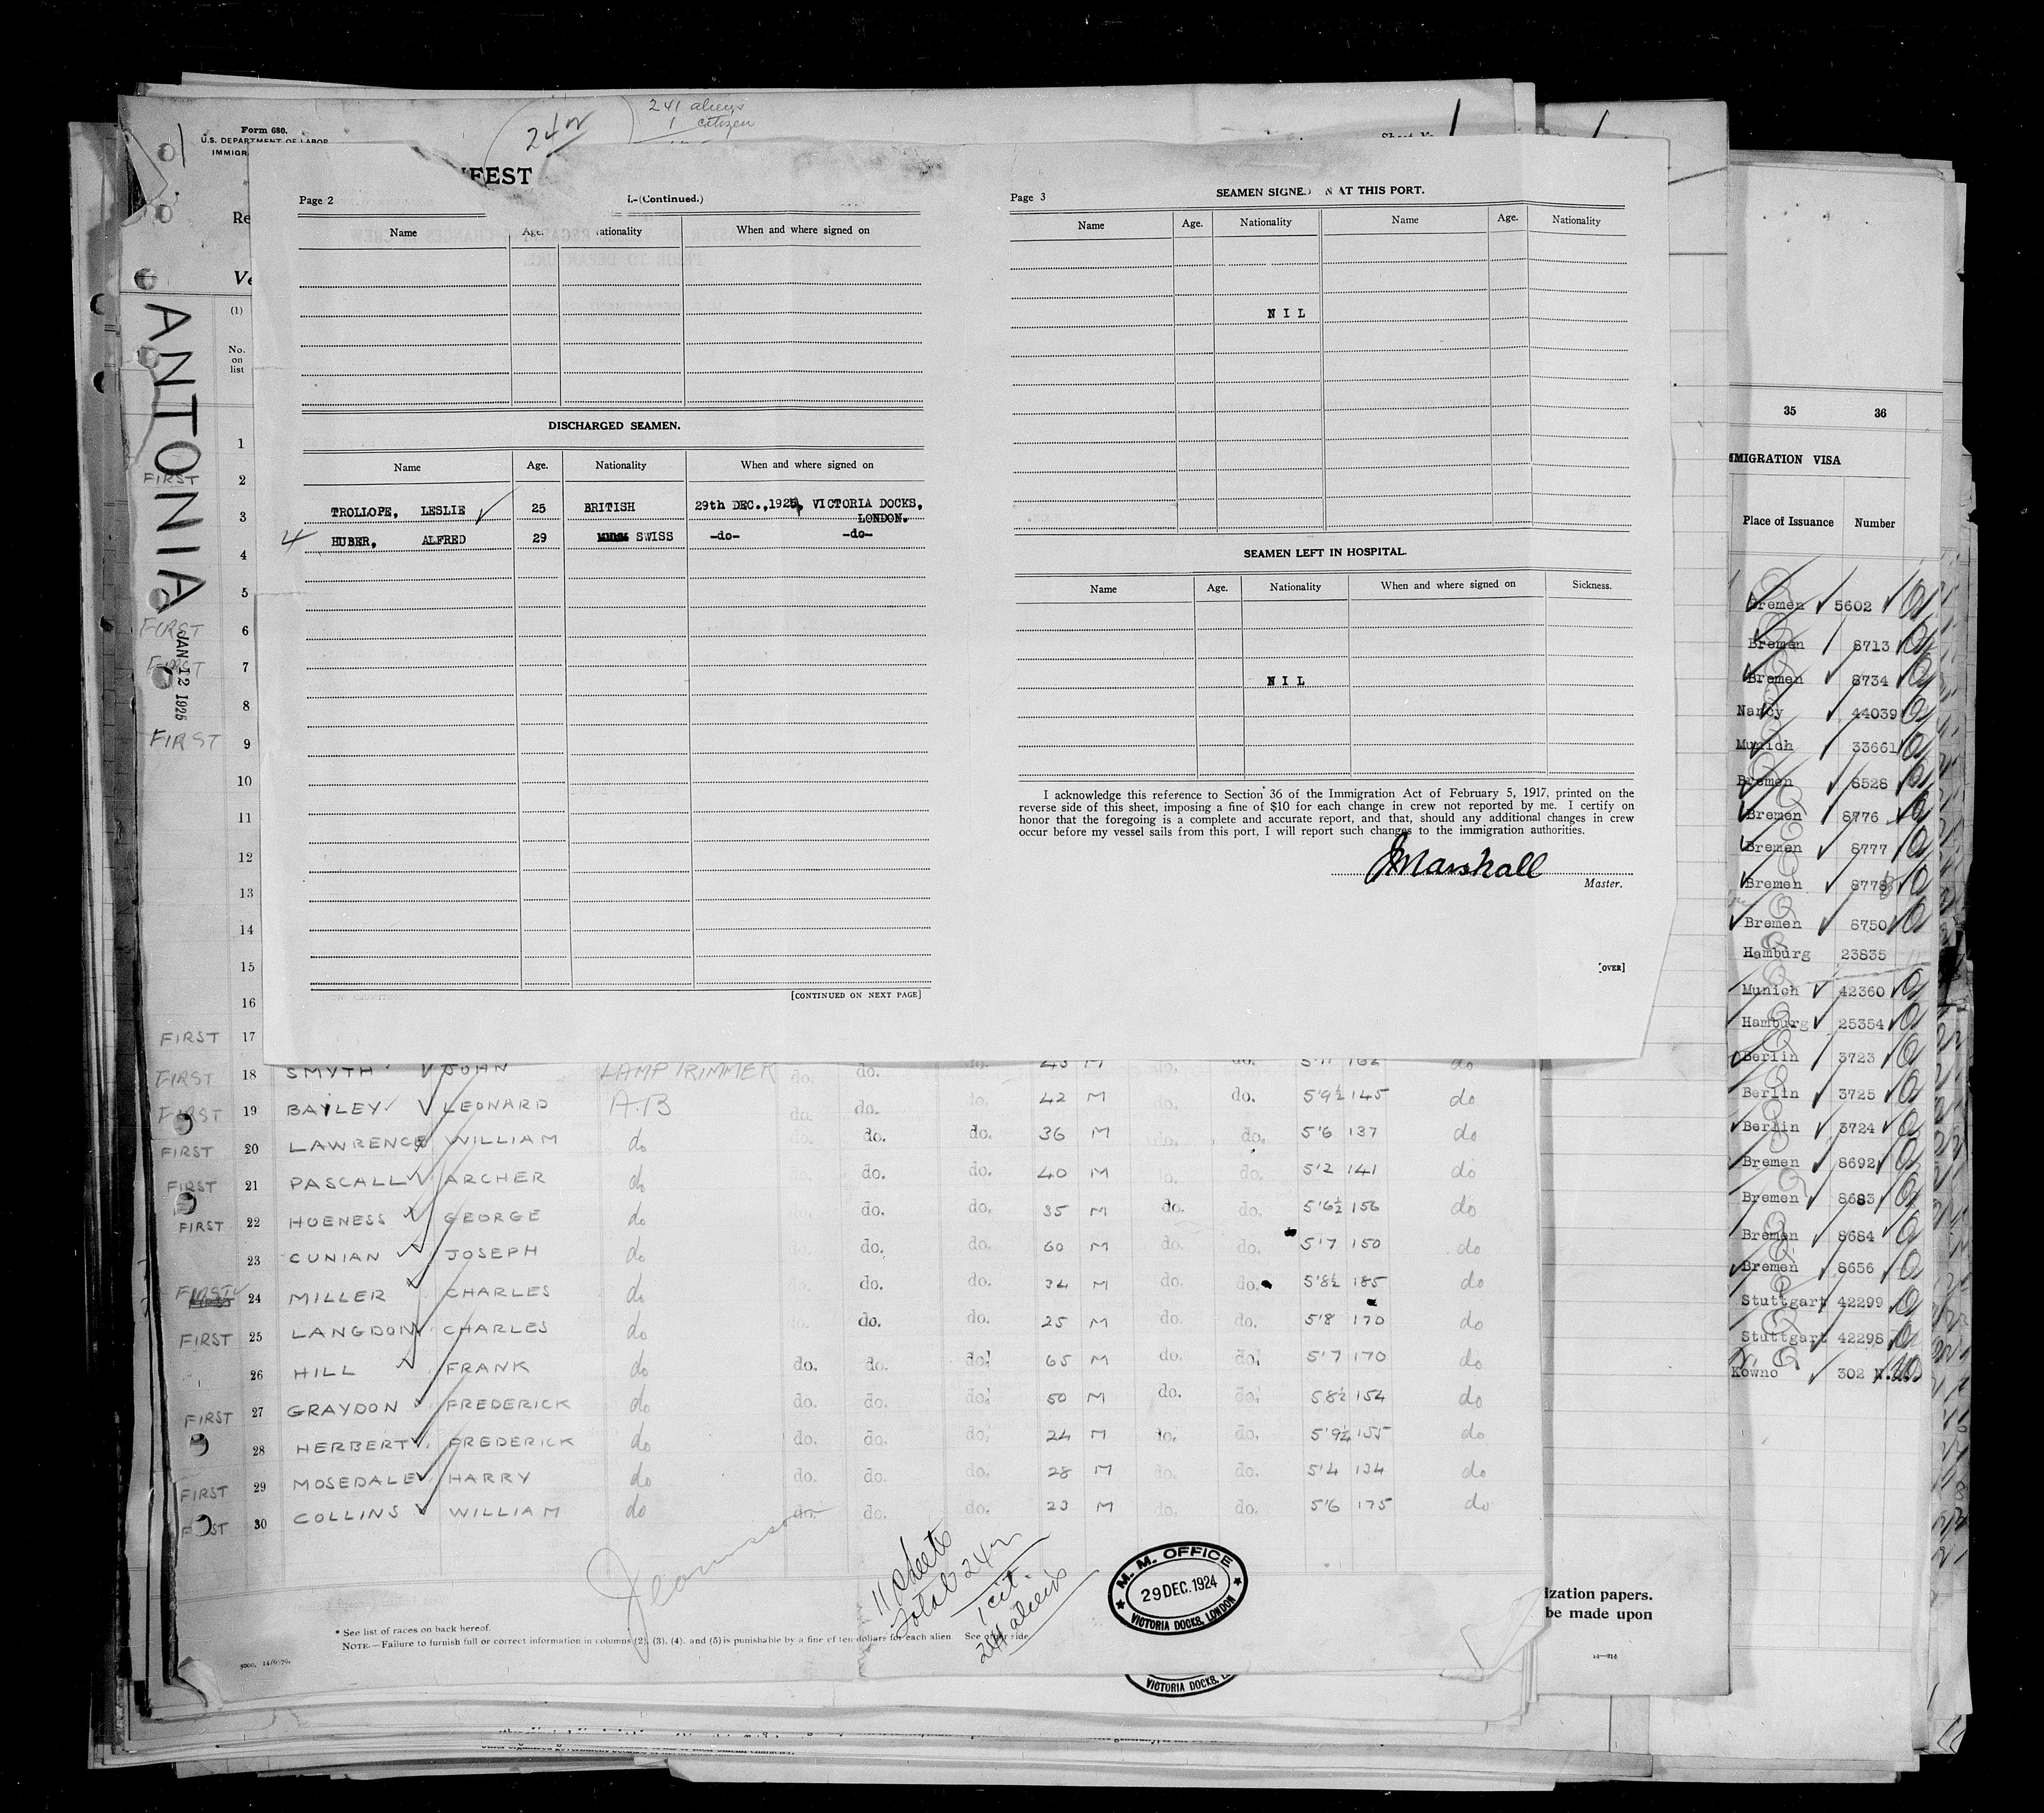 Form 680.
U.S. DEPARTMENT OF LABOR
IMMIGR
24
241 aliens
1 citizen
FEST
Re
Ve
(1)
No.
on
list
ANTONIA
JAN 12 1925
Page 2
(Continued.)
Name Age. ationality When and where signed on
DISCHARGED SEAMEN.
Name Age. Nationality When and where signed on
TROLLOPE, LESLIE 25 BRITISH 29th DEC., VICTORIA DOCKS,
LONDON.
4 HUBER, ALFRED 29 SWISS -do- -do-
[CONTINUED ON NEXT PAGE]
Page 3
SEAMEN SIGNE N AT THIS PORT.
Name Age. Nationality Name Age. Nationality
NIL
SEAMEN LEFT IN HOSPITAL.
Name Age. Nationality When and where signed on Sickness.
NIL
I acknowledge this reference to Section 36 of the Immigration Act of February 5, 1917, printed on the
reverse side of this sheet, imposing a fine of $10 for each change in crew not reported by me. I certify on
honor that the foregoing is a complete and accurate report, and that, should any additional changes in crew
occur before my vessel sails from this port, I will report such changes to the immigration authorities.
JMarshall
Master.
[OVER]
1
FIRST 2
3
4
5
FIRST 6
FIRST 7
8
FIRST 9
10
11
12
13
14
15
16
FIRST 17
FIRST 18 SMYTH JOHN LAMP TRIMMER do. do. do. do
FIRST 19 BAYLEY LEONARD A.B do. do. do. 42 M do. do. 5'9½ 145 do
FIRST 20 LAWRENCE WILLIAM do do. do. do. 36 M do. do. 5'6 137 do
FIRST 21 PASCALL ARCHER do do. do. 40 M do. do. 5'2 141 do
FIRST 22 HOENESS GEORGE do do. do. 35 M do. do. 5'6½ 156 do
23 CUNIAN JOSEPH do do. do. 60 M do. do. 5'7 150 do
FIRST 24 MILLER CHARLES do do. do. 34 M do. do. 5'8½ 185 do
FIRST 25 LANGDON CHARLES do do. do. 25 M do. do. 5'8 170 do
26 HILL FRANK do do. do. do. 65 M do. do. 5'7 170 do
FIRST 27 GRAYDON FREDERICK do do. do. do. 50 M do. do. 5'8½ 154 do
28 HERBERT FREDERICK do do. do. do. 24 M do. do. 5'9¼ 155 do
FIRST 29 MOSEDALE HARRY do do. do. do. 28 M do. do. 5'4 134 do
30 COLLINS WILLIAM do do. do. do. 23 M do. do. 5'6 175 do
11 sheets
total 242
1 cit.
241 aliens
M. M. OFFICE
29 DEC. 1924
VICTORIA DOCKS, LONDON
VICTORIA DOCKS,
* See list of races on back hereof.
NOTE.—Failure to furnish full or correct information in columns (2), (3), (4), and (5) is punishable by a fine of ten dollars for each alien. See other side.
35 36
MMIGRATION VISA
Place of Issuance Number
Bremen 5602
Bremen 8713
Bremen 8734
Nancy 44039
Munich 33661
Bremen 8528
Bremen 8776
Bremen 8777
Bremen 8778
Bremen 8750
Hamburg 23835
Munich 42360
Hamburg 25354
Berlin 3723
Berlin 3725
Berlin 3724
Bremen 8692
Bremen 8683
Bremen 8684
Bremen 8656
Stuttgart 42299
Stuttgart 42298
Kowno 302
ization papers.
be made upon